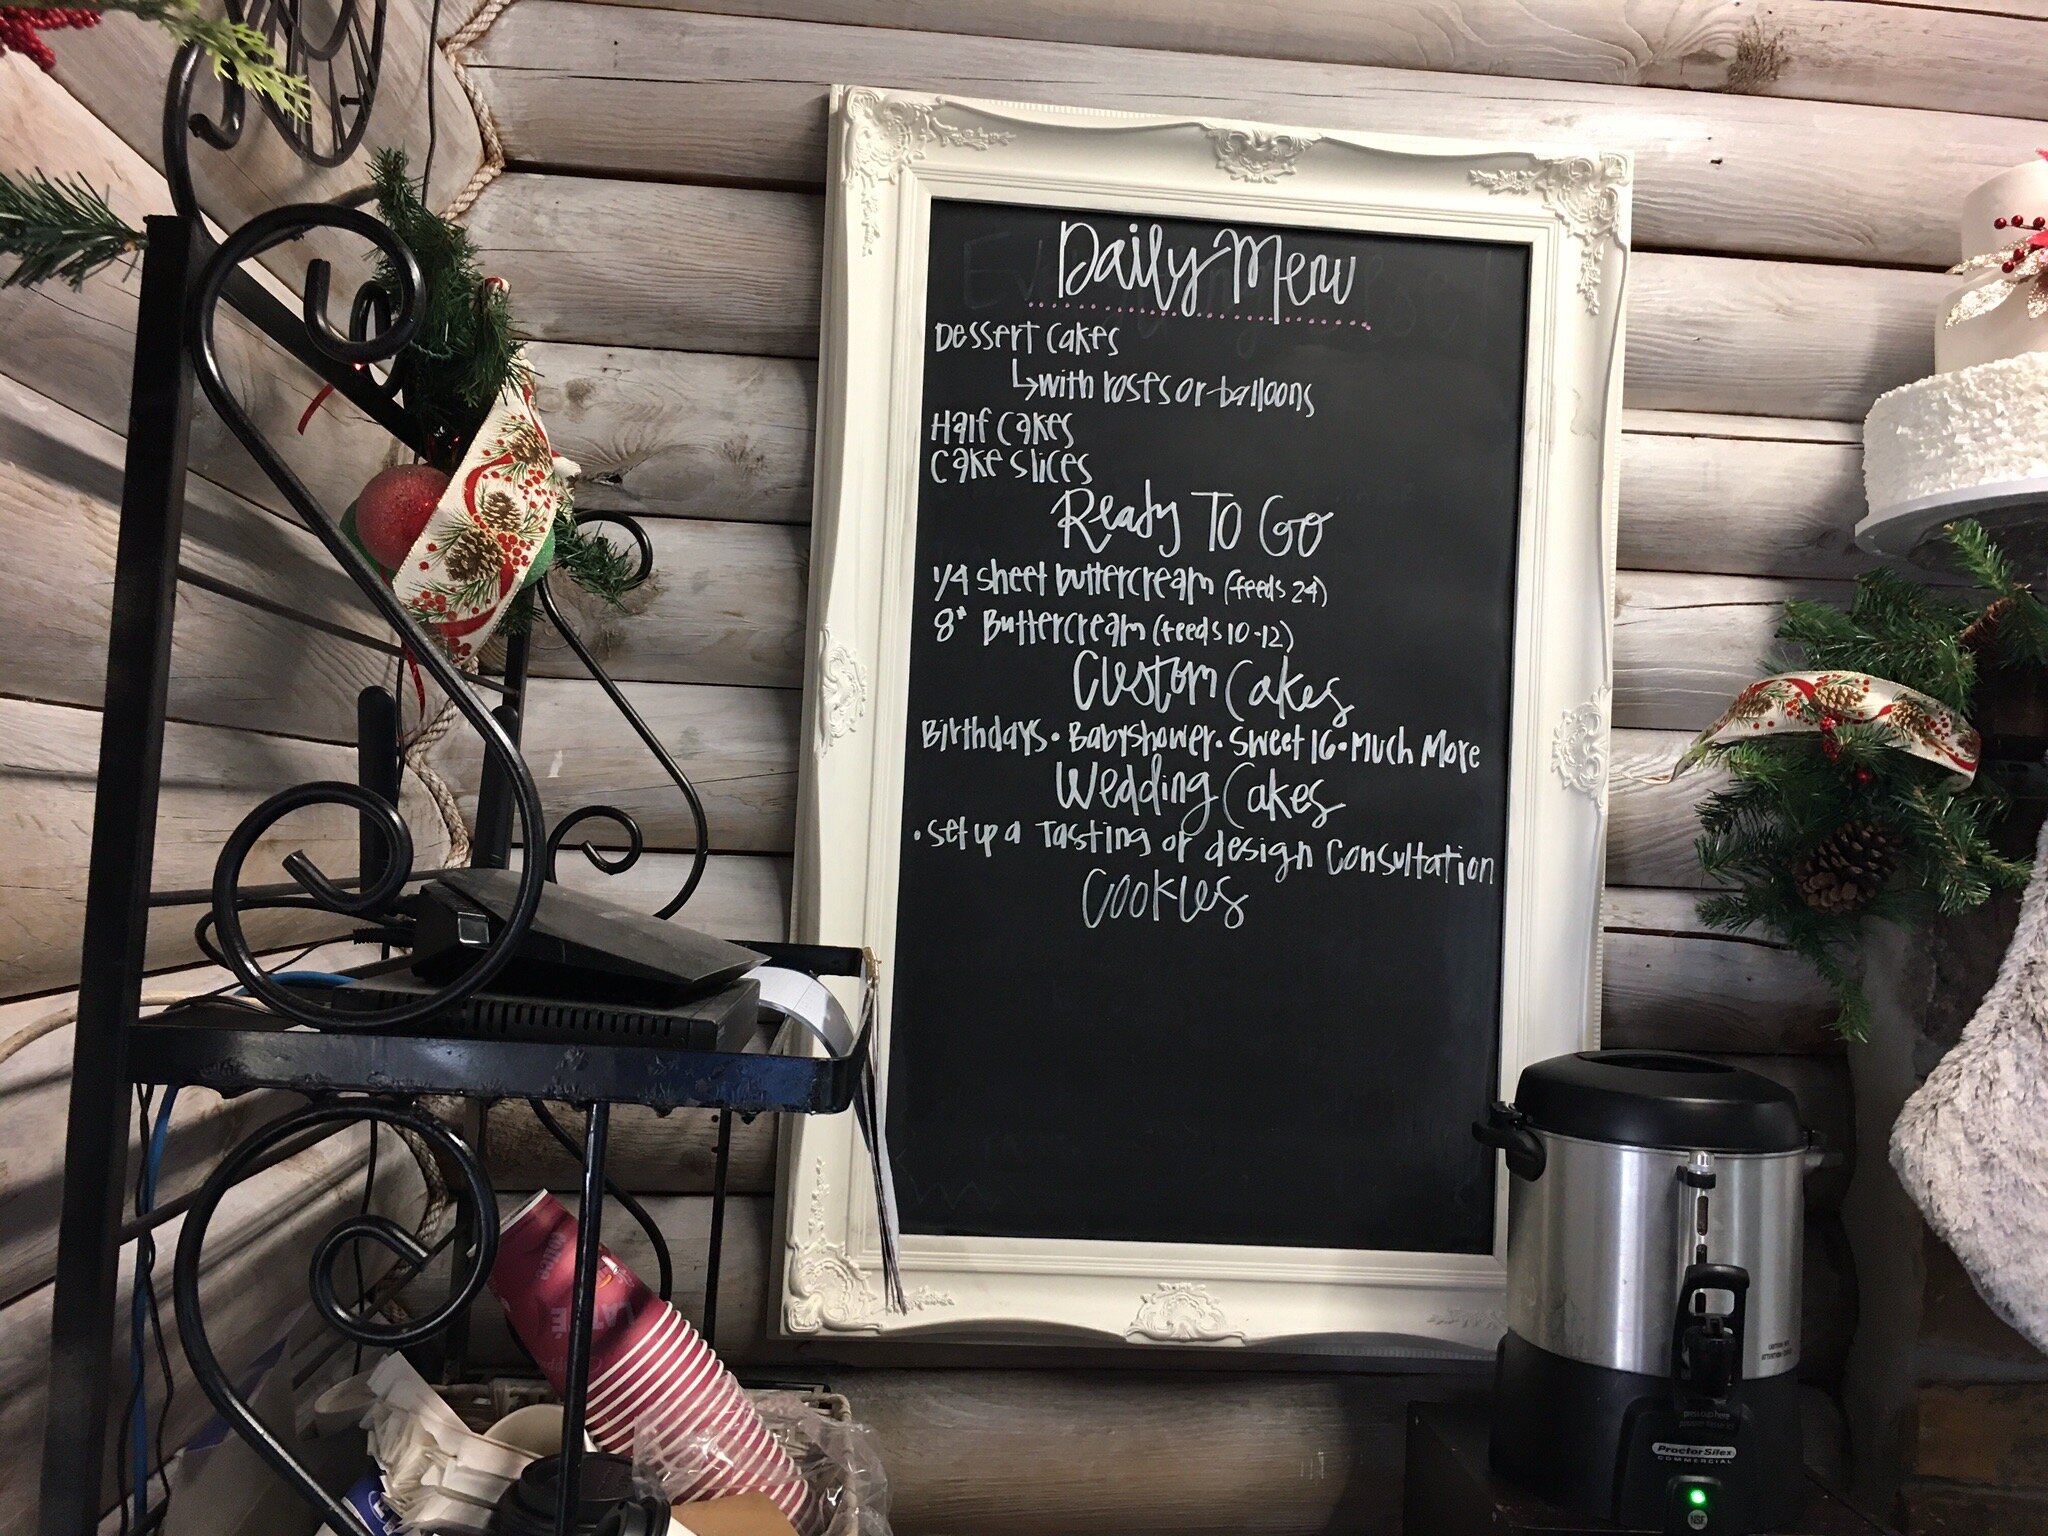 Daily Menu
Dessert Cakes
↳ with roses or balloons
Half Cakes
Cake Slices
Ready To Go
1/4 sheet buttercream (feeds 24)
8" Buttercream (feeds 10-12)
Custom Cakes
Birthdays • Babyshower • Sweet 16 • Much More
Wedding Cakes
• Set up a Tasting or design Consultation
Cookies
LATTÉ
press cup here
Proctor Silex
COMMERCIAL
NSF